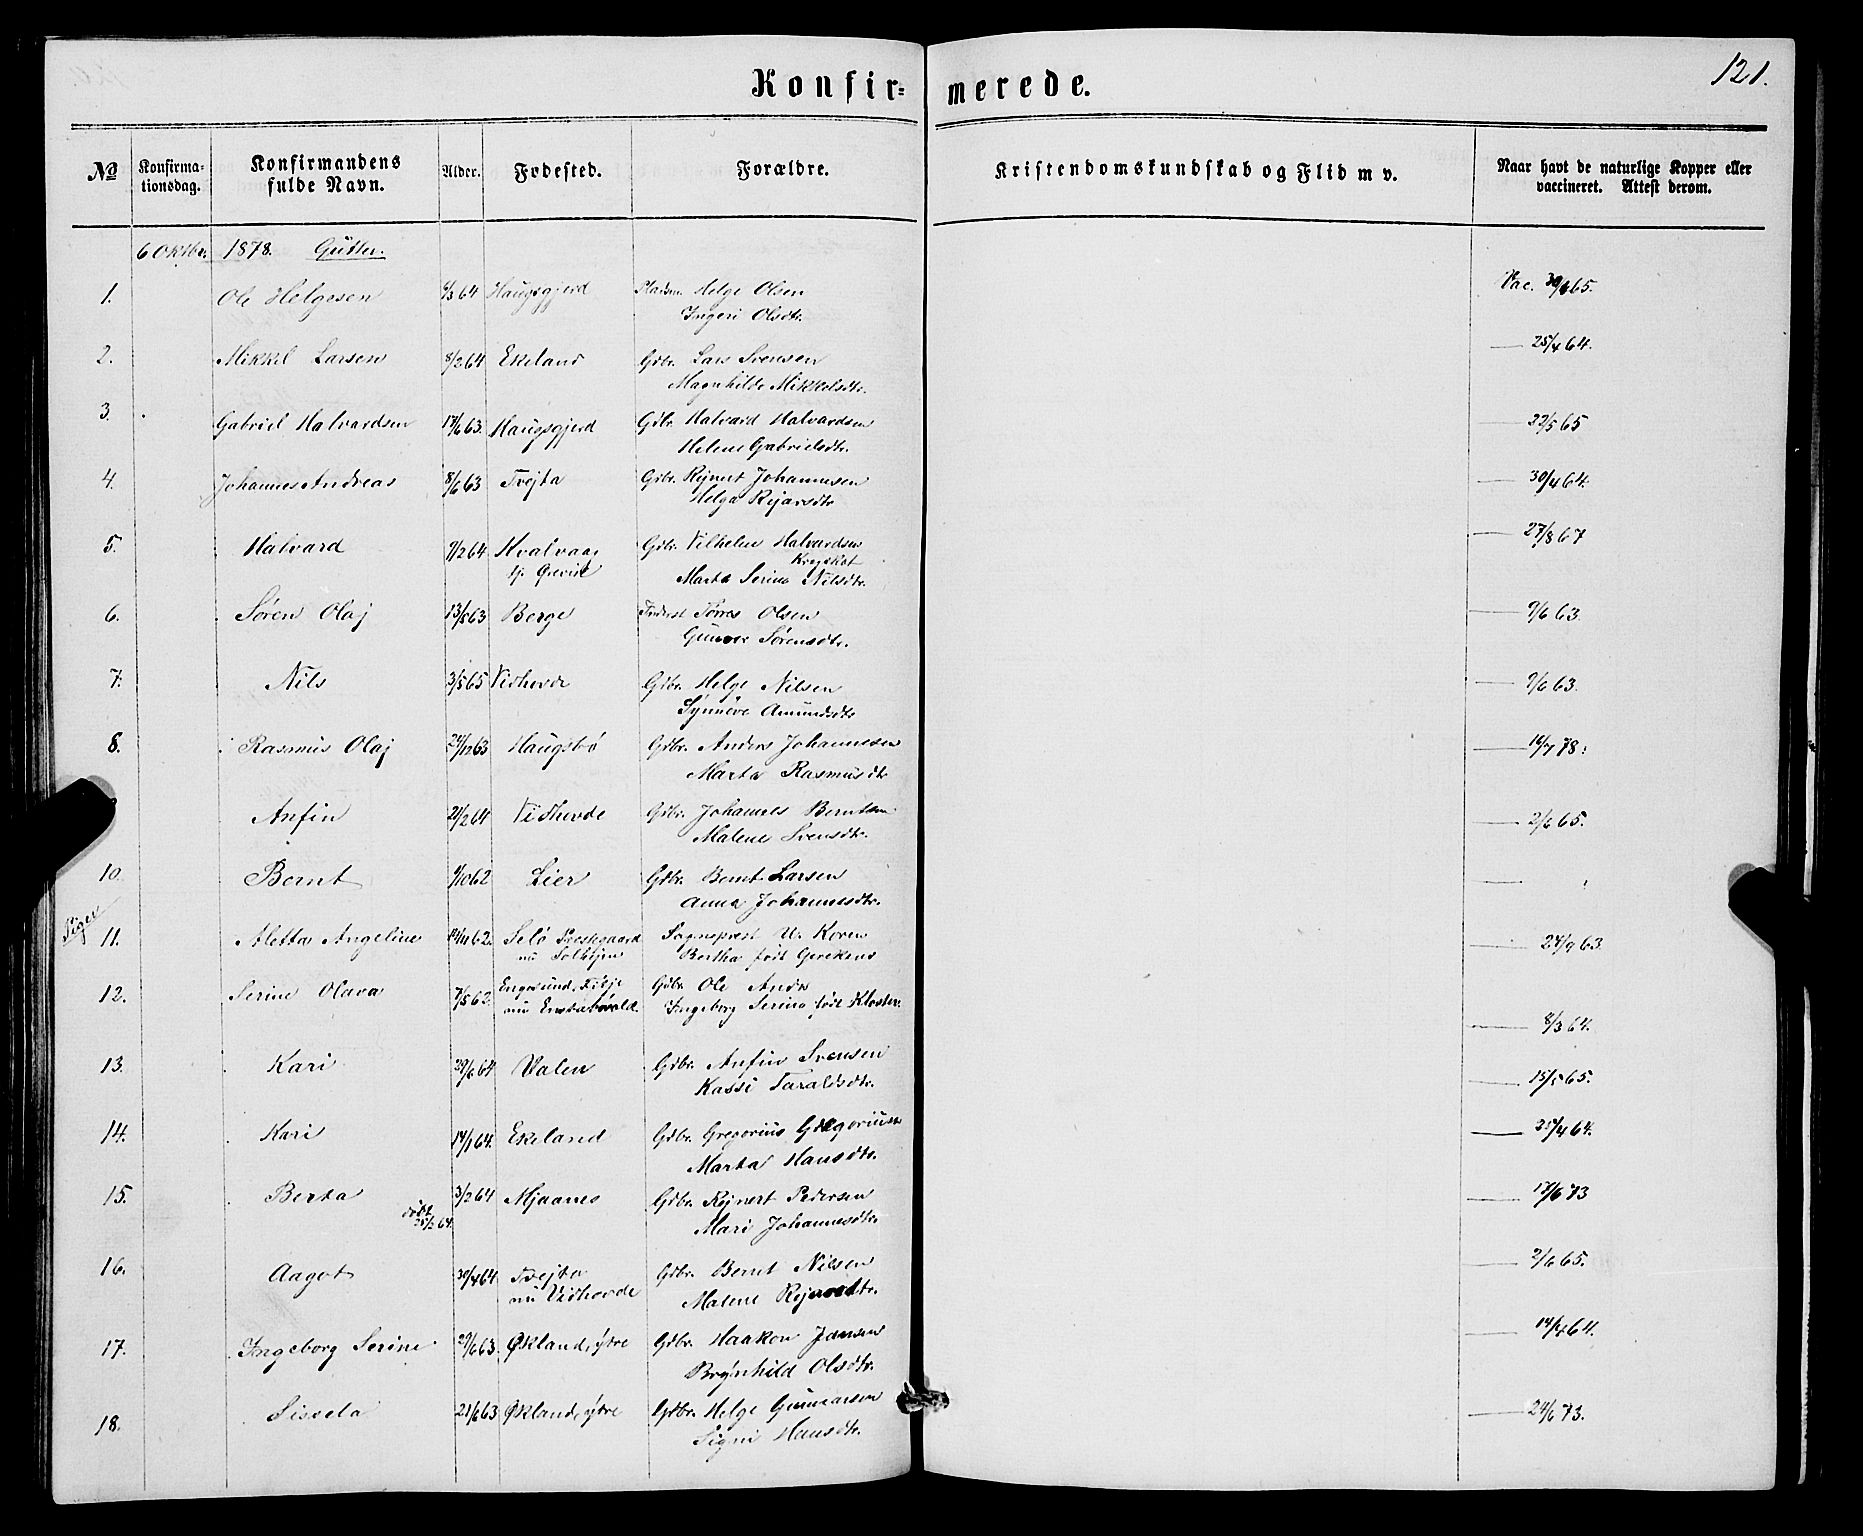 121.
Konfir= merede.
No Konfirma-tionsdag. Konfirmandens fulde Navn. Alder. Fødested. Forældre. Kristendomskundskab og Flid m v. Naar havt de naturlige Kopper eller vaccineret. Attest derom.
6 Oktbr. 1878. Gutter.
1. Ole Helgesen 9/3 64 Haugsgjerd Pladsm. Helge Olsen Vac. 30/6 65.
Ingeri Olsdtr.
2. Mikkel Larsen 8/2 64 Ekeland Gdbr. Lars Svensen — 25/4 64.
Magnhilde Mikkelsdtr.
3. Gabriel Halvardsen 17/6 63. Haugsgjerd Gdbr. Halvard Halvardsen — 22/5 65
Helene Gabrielsdtr.
4. Johannes Andreas 8/6 63 Tvejta Gdbr. Rejnert Johannesen — 30/4 64.
Helga Rejarsdtr
5. Halvard 9/2 64 Kvalvaag Gdbr. Vilhelm Halvardsen — 27/8 67
Marta Serina Nilsdtr.
6. Søren Olaj 13/8 63 Berge Tørres Olsen — 9/6 63.
Gunvor Sørensdtr.
7. Nils 3/5 65 Vidhovde Gdbr. Helge Nilsen — 9/6 63.
Synnøve Amundsdtr
8. Rasmus Olaj 24/12 63 Haugsbø Gdbr. Anders Johannesen — 16/7 78.
Marta Rasmusdtr
Anfin 21/2 64 Vidhovde Gdbr. Johannes Berntsen — 2/6 65.
Malene Svensdtr.
10. Bernt 9/10 62 Lier Gdbr. Bernt Larsen —
Anna Johannesdtr.
Piger
11. Aletta Angeline 14/11 62. Selø Prestegaard Sogneprest U. Koren — 24/9 63
nu Solhejm Bertha født Gerckens
12. Serine Olava 7/8 62. Gdbr. Ole Andr — 8/3 64.
Ingeborg Serina født Kloster.
13. Kari 29/6 64 Valen Gdbr. Anfin Svensen — 15/5 65.
Kassi Taraldsdtr.
14. Kari 14/1 64. Ekeland Gdbr. Gregorius Gregoriusen — 25/4 64.
Marta Hansdtr.
15. Berta 3/2 64 Mjaanes Gdbr. Rejnert Pedersen — 17/6 73
døbt 25/2 64. Mari Johannesdtr.
16. Aagot 30/4 64. Tvejta Gdbr. Bernt Nilsen — 2/6 65.
nu Vidhovde Malene Rejnertsdtr.
17. Ingeborg Serine 29/6 63. Økland, ytre Gdbr. Haakon Jansen — 14/4 64.
Brynhild Olsdtr.
18. Sisvela 21/6 63 Økland, ytre Gdbr. Helge Gunnarsen — 24/6 73.
Signi Hansdtr.